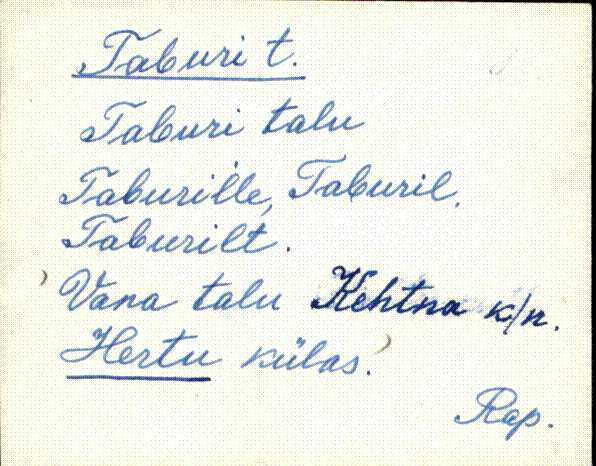 Taburi t.
Taburi talu
Taburille, Taburil.
Taburilt.
Vana talu Kehtna k/n.
Hertu külas.
Rap.